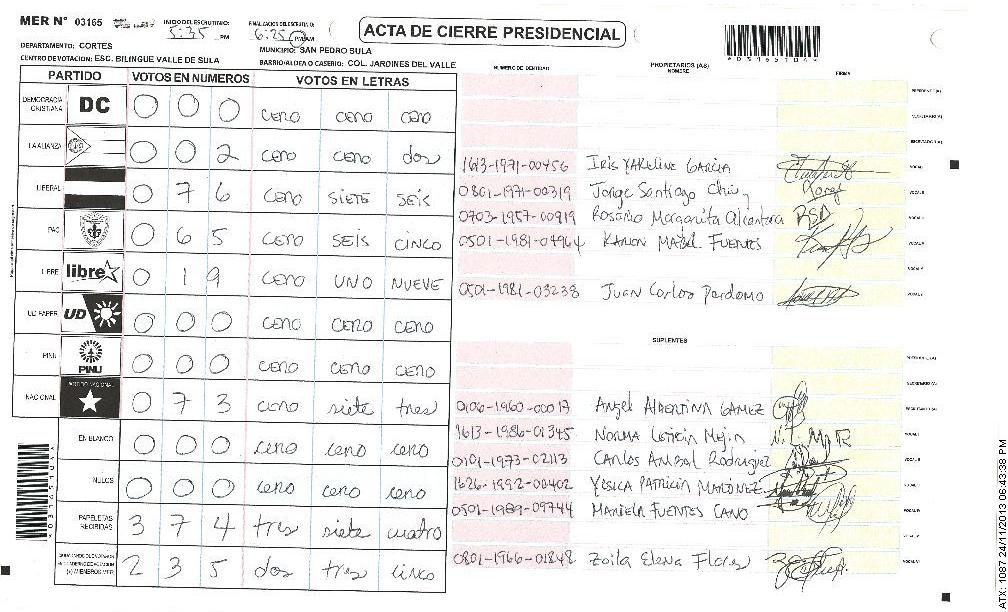 MER N° 03165
INICIO DE ESCRUTINIO: 5:35 PM
FINALIZACION DEL ESCRUTINIO: 6:25 PM/AM
ACTA DE CIERRE PRESIDENCIAL
*03165104*
DEPARTAMENTO: CORTES
MUNICIPIO: SAN PEDRO SULA
CENTRO DE VOTACION: ESC. BILINGUE VALLE DE SULA
BARRIO/ALDEA O CASERIO: COL. JARDINES DEL VALLE
PARTIDO VOTOS EN NUMEROS VOTOS EN LETRAS
DEMOCRACIA CRISTIANA DC 0 0 0 CERO CERO CERO
LA ALIANZA 0 0 2 CERO CERO dos
LIBERAL 0 7 6 CERO SIETE SEIS
PAC 0 6 5 CERO SEIS CINCO
LIBRE libre 0 1 9 CERO UNO NUEVE
UD FAPER UD 0 0 0 CERO CERO CERO
PINU PINU 0 0 0 CERO CERO CERO
NACIONAL PARTIDO NACIONAL 0 7 3 cero siete tres
EN BLANCO 0 0 0 cero cero cero
NULOS 0 0 0 cero cero cero
PAPELETAS RECIBIDAS 3 7 4 tres siete cuatro
(+) MIEMBROS MER 2 3 5 dos tres cinco
NUMERO DE IDENTIDAD PROPIETARIOS (AS) NOMBRE FIRMA
PRESIDENTE(A)
SECRETARIO(A)
ESCRUTADOR(A)
1613-1971-00456 IRIS YAKELINE GARCIA
0801-1971-00319 Jorge Santiago
0703-1957-00919 Rosario Margarita Alcantara
0501-1981-04964 KAREN MABEL FUENTES
0501-1981-03238 Juan Carlos Perdomo
SUPLENTES
PRESIDENTE(A)
SECRETARIO(A)
0106-1960-00017 Angel Albertina GAMEZ ESCRUTADOR(A)
1613-1986-01345 NORMA Leticia Mejia
0101-1973-02113 CARLOS ANIBAL Rodriguez
1626-1992-00402 YESICA PATRICIA MARTINEZ
0501-1989-09744 MARIELA FUENTES CANO
0801-1966-01848 Zoila Elena Flores
*03165104*
ATX: 1087 24/11/2013 06:43:38 PM